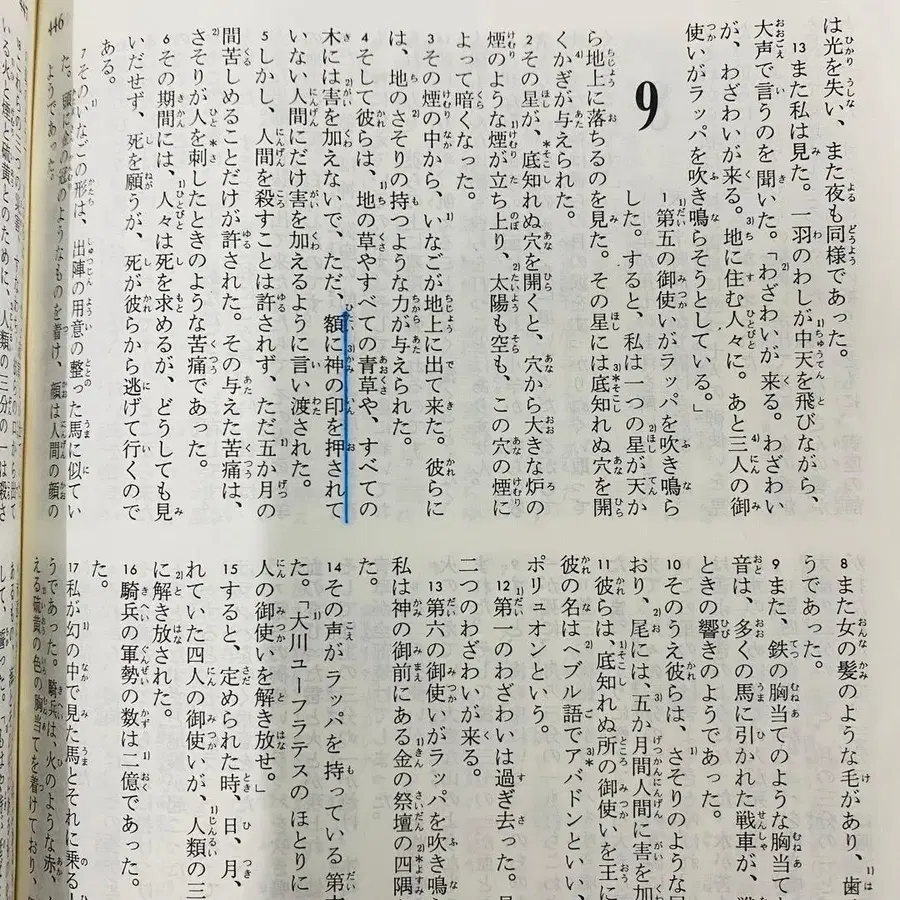 は光を失い、また夜も同様であった。
13また私は見た。一羽のわしが中天を飛びながら、
大声で言うのを聞いた。「わざわいが来る。わざわい
が、わざわいが来る。地に住む人々に。あと三人の御
使いがラッパを吹き鳴らそうとしている。」
9
1第五の御使いがラッパを吹き鳴ら
した。すると、私は一つの星が天か
ら地上に落ちるのを見た。その星には底知れぬ穴を開
くかぎが与えられた。
2その星が、底知れぬ穴を開くと、穴から大きな炉の
煙のような煙が立ち上り、太陽も空も、この穴の煙に
よって暗くなった。
3その煙の中から、いなごが地上に出て来た。彼らに
は、地のさそりの持つような力が与えられた。
4そして彼らは、地の草やすべての青草や、すべての
木には害を加えないで、ただ、額に神の印を押されて
いない人間にだけ害を加えるように言い渡された。
5しかし、人間を殺すことは許されず、ただ五か月の
間苦しめることだけが許された。その与えた苦痛は、
さそりが人を刺したときのような苦痛であった。
6その期間には、人々は死を求めるが、どうしても見
いだせず、死を願うが、死が彼らから逃げて行くので
ある。
7そのいなごの形は、出陣の用意の整った馬に似てい
た。頭に金の冠のようなものを着け、顔は人間の顔の
ようであった。
446
8また女の髪のような毛があり、歯
うであった。
9また、鉄の胸当てのような胸当て
音は、多くの馬に引かれた戦車が、
ときの響きのようであった。
10そのうえ彼らは、さそりのような
おり、尾には、五か月間人間に害を加
11彼らは、底知れぬ所の御使いを王に
彼の名はヘブル語でアバドンといい、
ポリュオンという。
12第一のわざわいは過ぎ去った。
二つのわざわいが来る。
13第六の御使いがラッパを吹き鳴
私は神の御前にある金の祭壇の四隅
た。
14その声がラッパを持っている第
た。「大川ユーフラテスのほとりに
人の御使いを解き放せ。」
15すると、定められた時、日、月、
れていた四人の御使いが、人類の三
に解き放された。
16騎兵の軍勢の数は二億であった。
た。
17私が幻の中で見た馬とそれに乗る
うであった。騎兵は、火のような赤、
える硫黄の色の胸当てを着けており、